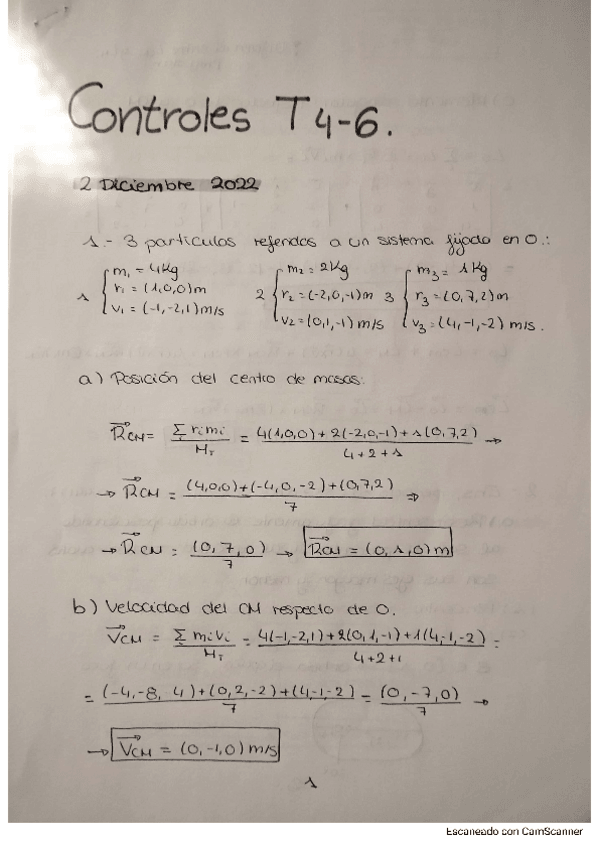 Controles T4-6.
2 Diciembre 2022
1.- 3 partículas referidas a un sistema fijado en O.:
1 { m₁ = 4Kg
r₁ = (1,0,0)m
v₁ = (-1,-2,1)m/s
2 { m₂ = 2Kg
r₂ = (-2,0,-1)m
v₂ = (0,1,-1)m/s
3 { m₃ = 1Kg
r₃ = (0,7,2)m
v₃ = (4,-1,-2) m/s.
a) Posición del centro de masas:
R⃗CM = Σ rᵢmᵢ / M_T = 4(1,0,0)+2(-2,0,-1)+1(0,7,2) / 4+2+1 →
→ R⃗CM = (4,0,0)+(-4,0,-2)+(0,7,2) / 7 ⇒
→ R⃗CM = (0,7,0) / 7 → R⃗CM = (0,1,0)m
b) Velocidad del CM respecto de O.
V⃗CM = Σ mᵢvᵢ / M_T = 4(-1,-2,1)+2(0,1,-1)+1(4,-1,-2) / 4+2+1 =
= (-4,-8,4)+(0,2,-2)+(4,-1-2) / 7 = (0,-7,0) / 7 →
→ V⃗CM = (0,-1,0) m/s
1
Escaneado con CamScanner